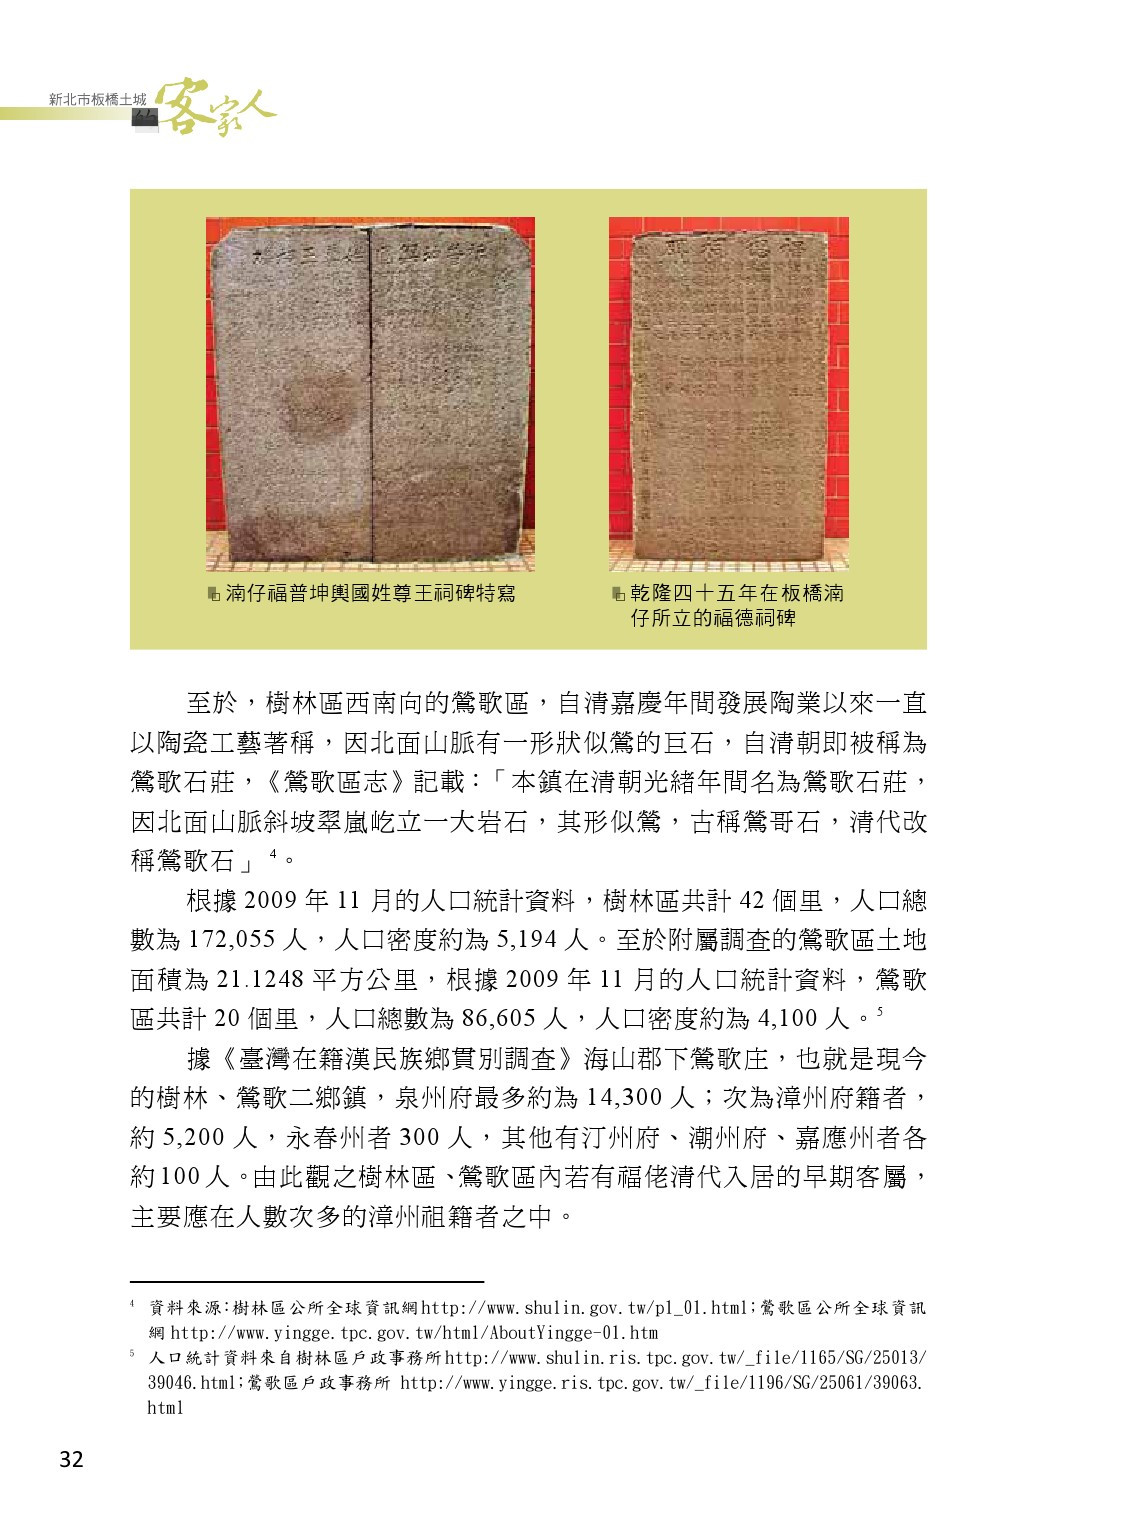 新北市板橋土城
的
客家人
湳仔福普坤輿國姓尊王祠碑特寫
乾隆四十五年在板橋湳
仔所立的福德祠碑
至於，樹林區西南向的鶯歌區，自清嘉慶年間發展陶業以來一直
以陶瓷工藝著稱，因北面山脈有一形狀似鶯的巨石，自清朝即被稱為
鶯歌石莊，《鶯歌區志》記載：「本鎮在清朝光緒年間名為鶯歌石莊，
因北面山脈斜坡翠嵐屹立一大岩石，其形似鶯，古稱鶯哥石，清代改
稱鶯歌石」4。
根據 2009 年 11 月的人口統計資料，樹林區共計 42 個里，人口總
數為 172,055 人，人口密度約為 5,194 人。至於附屬調查的鶯歌區土地
面積為 21.1248 平方公里，根據 2009 年 11 月的人口統計資料，鶯歌
區共計 20 個里，人口總數為 86,605 人，人口密度約為 4,100 人。5
據《臺灣在籍漢民族鄉貫別調查》海山郡下鶯歌庄，也就是現今
的樹林、鶯歌二鄉鎮，泉州府最多約為 14,300 人；次為漳州府籍者，
約 5,200 人，永春州者 300 人，其他有汀州府、潮州府、嘉應州者各
約 100 人。由此觀之樹林區、鶯歌區內若有福佬清代入居的早期客屬，
主要應在人數次多的漳州祖籍者之中。
4 資料來源：樹林區公所全球資訊網http://www.shulin.gov.tw/p1_01.html；鶯歌區公所全球資訊
網 http://www.yingge.tpc.gov.tw/html/AboutYingge-01.htm
5 人口統計資料來自樹林區戶政事務所http://www.shulin.ris.tpc.gov.tw/_file/1165/SG/25013/
39046.html；鶯歌區戶政事務所 http://www.yingge.ris.tpc.gov.tw/_file/1196/SG/25061/39063.
html
32